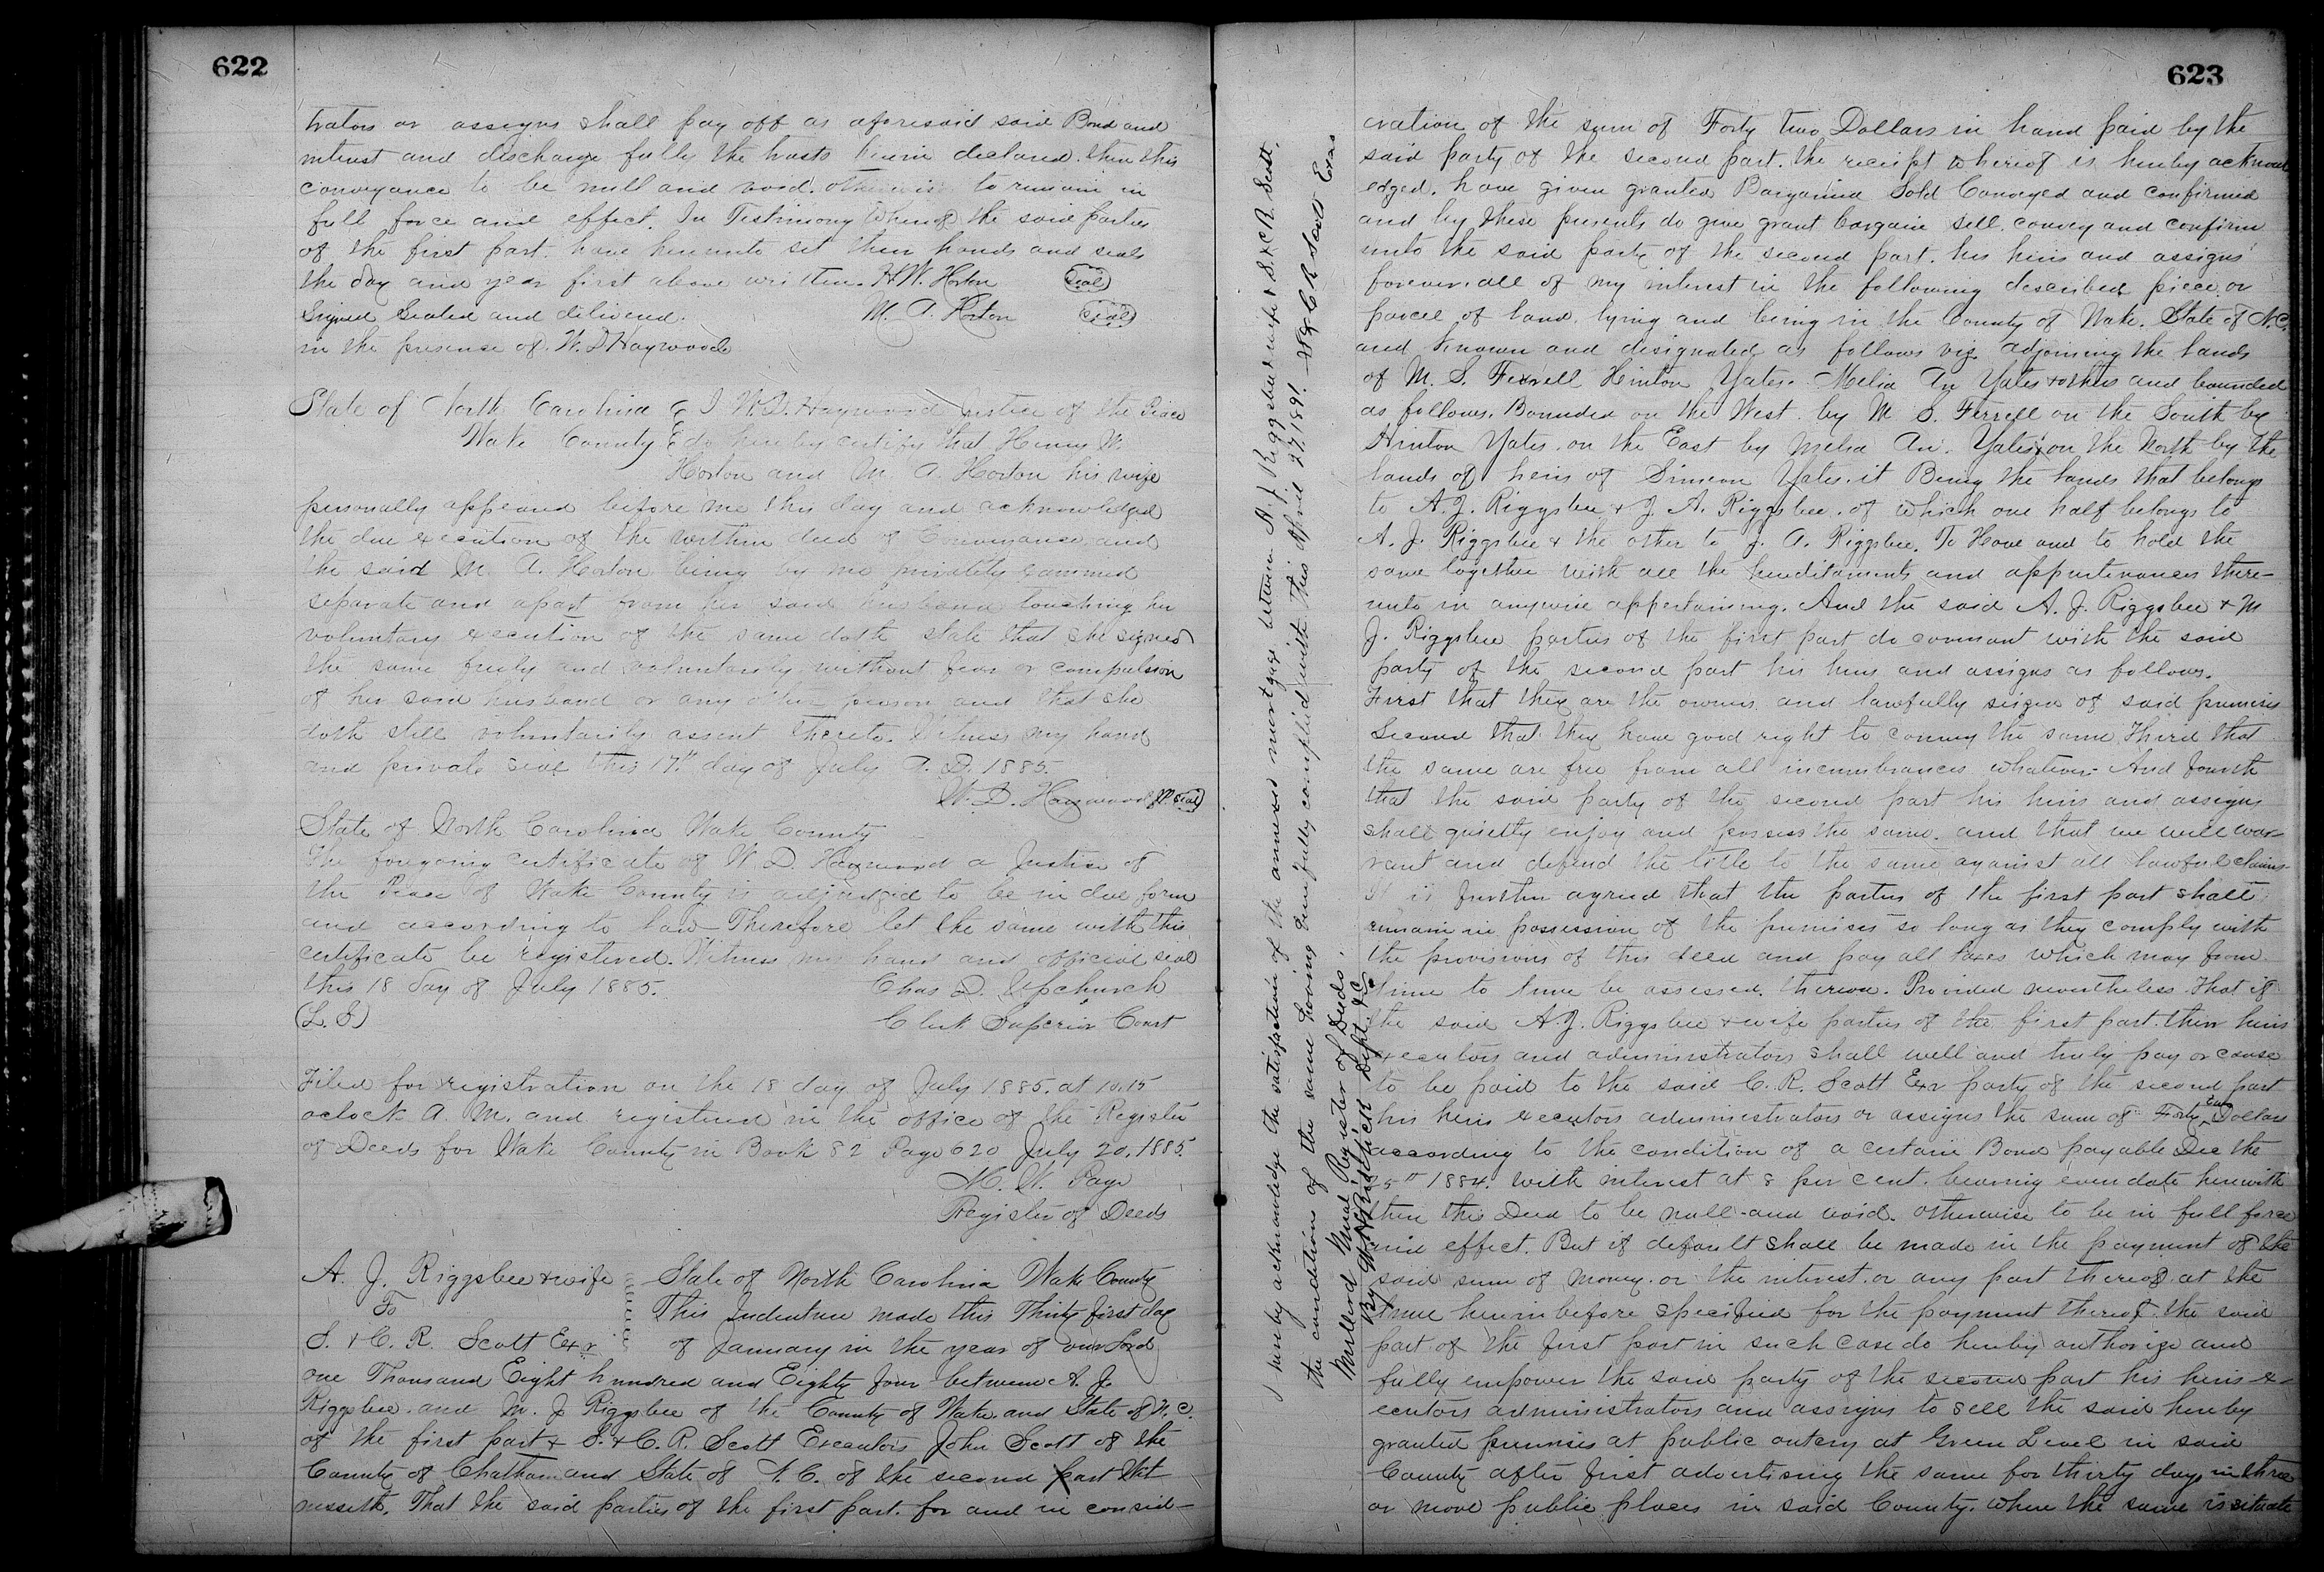 622
trators or assigns shall pay off as aforesaid said Bond and
interest and discharge fully the trusts herein declared. then this
conveyance to be null and void. otherwise to remain in
full force and effect. In Testimony Whereof the said parties
of the first part. have hereunto set their hands and seals
the day and year first above written. H.W. Horton (Seal)
Signed Sealed and delivered. M. A. Horton (Seal)
in the presence of. W. D Haywood
State of North Carolina I W.D. Haywood Justice of the Peace
Wake County do hereby certify that Henry W.
Horton and M. A. Horton his wife
personally appeared before me this day and acknowledged
the due execution of the within deed of Conveyance and
the said M. A. Horton being by me privately examined
separate and apart from her said husband touching her
voluntary execution of the same doth state that she signed
the same freely and voluntarily without fear or compulsion
of her said husband or any other person and that she
doth still voluntarily assent thereto. Witness my hand
and private seal this 17th day of July A. D. 1885.
W. D. Haywood J.P. (Seal)
State of North Carolina Wake County
The foregoing certificate of W D. Haywood a Justice of
the Peace of Wake County is adjudged to be in due form
and according to law Therefore let the same with this
certificate be registered. Witness my hand and official seal
this 18 day of July 1885. Chas D. Upchurch
(L. S) Clerk Superior Court
Filed for registration on the 18 day of July 1885. at 10.15
oclock A. M. and registered in the office of the Register
of Deeds for Wake County in Book 82 Page 620 July 20, 1885.
M. W. Page
Register of Deeds
A. J. Riggsbee & wife State of North Carolina Wake County
To This Indenture made this Thirty first day
S. & C. R. Scott Exr of January in the year of our Lord
one Thousand Eight hundred and Eighty four between A. J.
Riggsbee. and M. J Riggsbee of the County of Wake and State of N. C.
of the first part & S. & C. R. Scott Executors John Scott of the
County of Chatham and State of N. C. of the second part Wit
nesseth. That the said parties of the first part. for and in consid-
623
I hereby acknowledge the satisfaction of the annexed mortgage between A. J. Riggsbee & wife & S. & C R Scott.
the conditions of the same having been fully complied with this April 27. 1891. S & C R Scott Exrs
Millard Mial Register of Deeds.
By Dept. &c
eration of the sum of Forty two Dollars in hand paid by the
said party of the second part. the receipt whereof is hereby acknowl
edged. have given granted Bargained Sold Conveyed and confirmed
and by these presents do give grant bargain sell. convey and confirm
unto the said party of the second part. his heirs and assigns
forever. all of my interest in the following described piece or
parcel of land. lying and being in the County of Wake. State of N.C.
and known and designated as follows viz adjoining the lands
of M. S. Ferrell Hinton Yates. Melia An Yates & others and bounded
as follows. Bounded on the West. by M S. Ferrell on the South by
Hinton Yates. on the East by Melia An. Yates & on the North by the
lands of heirs of Simeon Yates. it Being the lands that belongs
to A. J. Riggsbee & J. A. Riggsbee. of which one half belongs to
A. J. Riggsbee & the other to J. A. Riggsbee. To Have and to hold the
same together with all the hereditaments and appurtenances there-
unto in anywise appertaining. And the said A. J. Riggsbee & M
J. Riggsbee parties of the first part do covenant with the said
party of the second part his heirs and assigns as follows.
First that they are the owners and lawfully seized of said premises
Second that they have good right to convey the same Third that
the same are free from all incumbrances whatever. And fourth
that the said party of the second part his heirs and assigns
shall quietly enjoy and possess the same. and that we will war-
rant and defend the title to the same against all lawful claims
It is further agreed that the parties of the first part shall
remain in possession of the premises so long as they comply with
the provisions of this deed and pay all taxes which may from
time to time be assessed. thereon. Provided nevertheless That if
the said A. J. Riggsbee & wife parties of the first part. their heirs
executors and administrators shall well and truly pay or cause
to be paid to the said C. R. Scott Exr party of the second part
his heirs executors administrators or assigns the sum of Forty two Dollars
according to the condition of a certain Bond payable Dec the
25" 1884. with interest at 8 per cent. bearing even date herewith
then this Deed to be null and void. otherwise to be in full force
and effect. But if default shall be made in the payment of the
said sum of money. or the interest. or any part thereof at the
time herein before specified for the payment thereof. the said
part of the first part in such case do hereby authorize and
fully empower the said party of the second part his heirs ex-
ecutors administrators and assigns to sell the said hereby
granted premises at public outcry at Green Level in said
County after first advertising the same for thirty days in three
or more public places in said County. where the same is situate